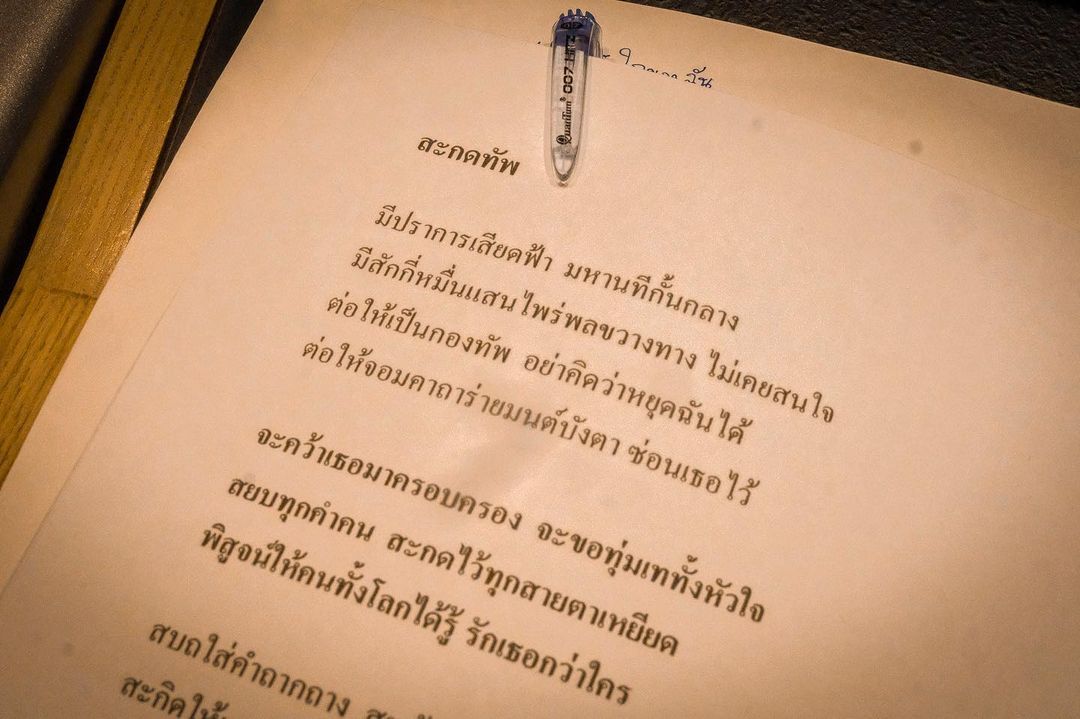 Quantum® 007 HTZ
สะกดทัพ
มีปราการเสียดฟ้า มหานทีกั้นกลาง
มีสักกี่หมื่นแสนไพร่พลขวางทาง ไม่เคยสนใจ
ต่อให้เป็นกองทัพ อย่าคิดว่าหยุดฉันได้
ต่อให้จอมคาถาร่ายมนต์บังตา ซ่อนเธอไว้
จะคว้าเธอมาครอบครอง จะขอทุ่มเททั้งหัวใจ
สยบทุกคำคน สะกดไว้ทุกสายตาเหยียด
พิสูจน์ให้คนทั้งโลกได้รู้ รักเธอกว่าใคร
สบถใส่คำถากถาง
สะกิดให้